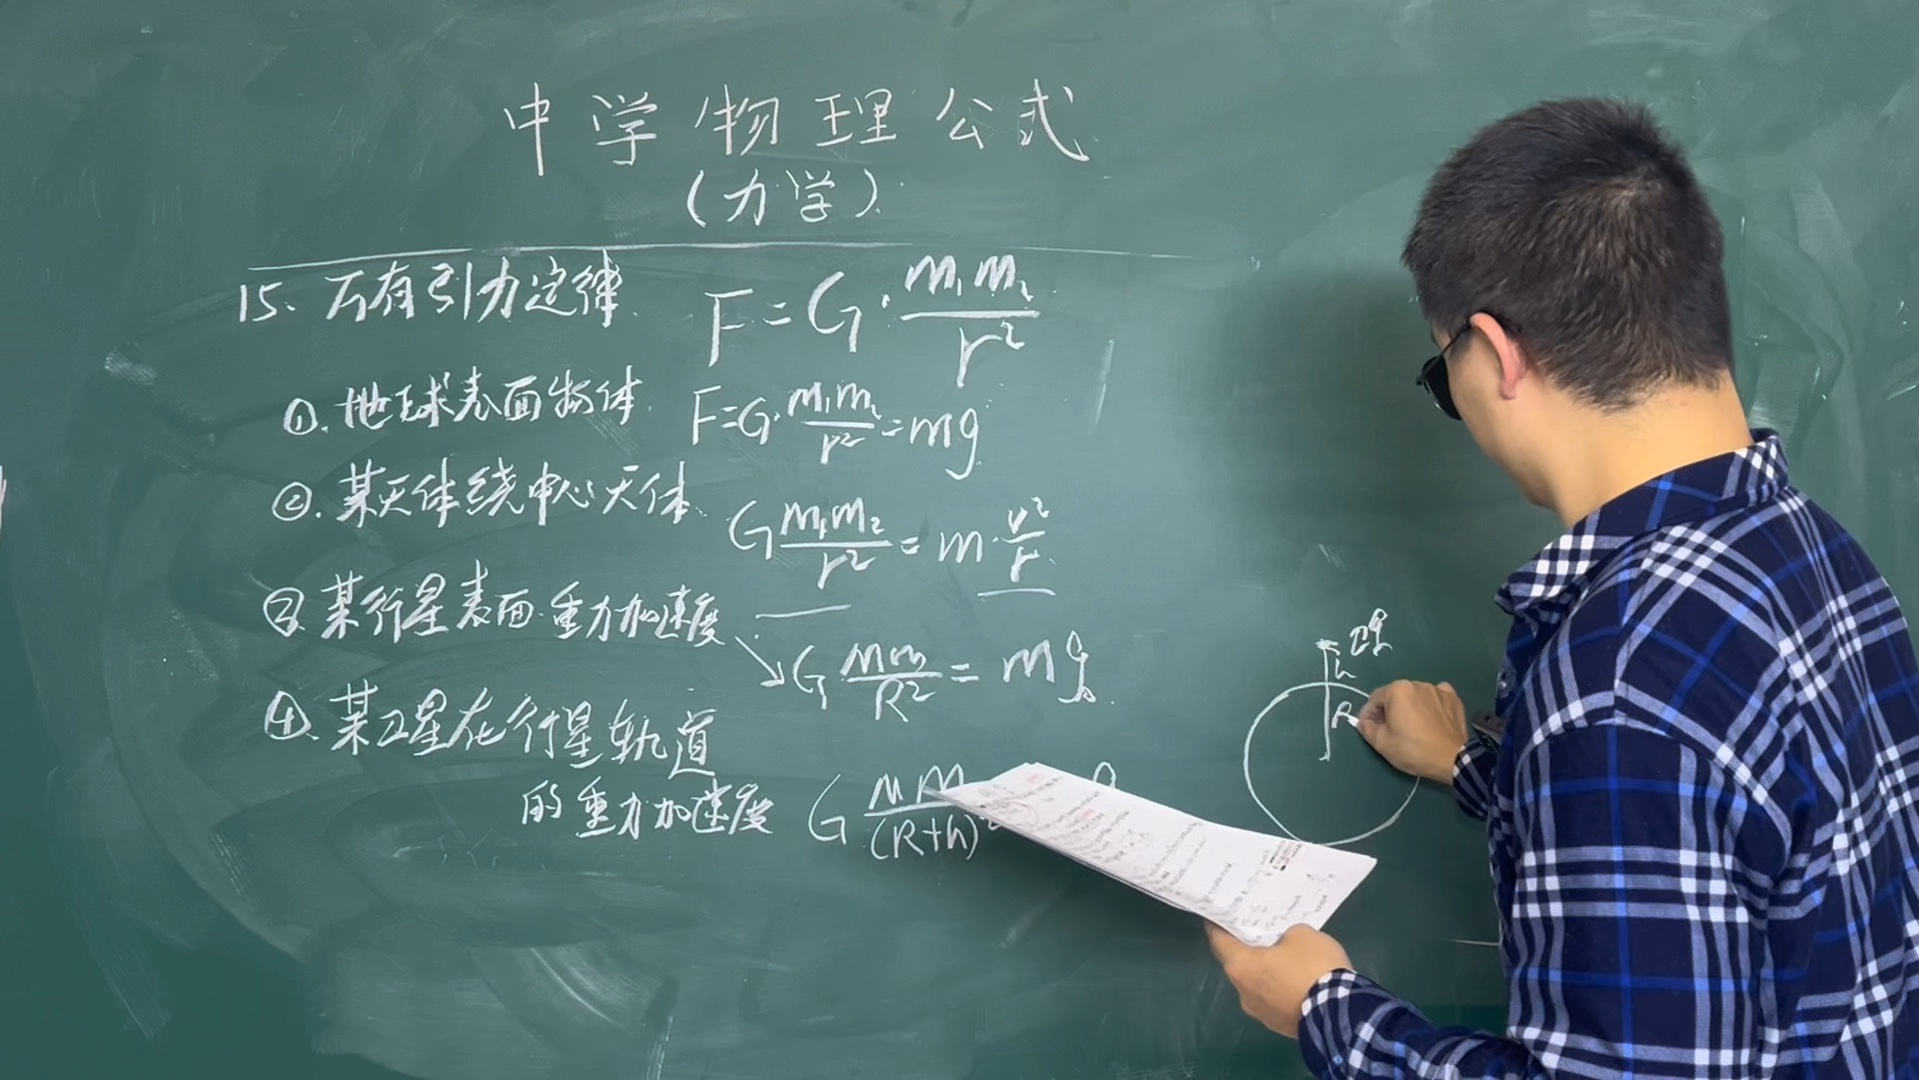 中学物理公式
(力学)
15. 万有引力定律 F=G·m₁m₂/r²
①. 地球表面物体 F=G·m₁m₂/r²=mg
②. 某天体绕中心天体 Gm₁m₂/r²=m·v²/r
③ 某行星表面重力加速度 → GMm/R²=mg
④. 某卫星在行星轨道
的重力加速度 GMm/(R+h)²
卫星
h
R